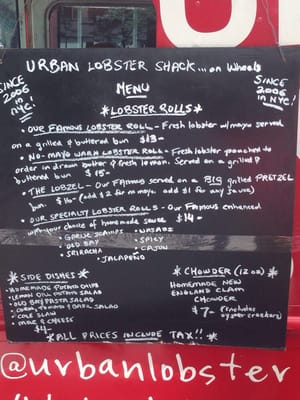 URBAN LOBSTER SHACK...on Wheels
MENU
SINCE
2006
in
NYC!
SINCE
2006
in NYC!
*LOBSTER ROLLS*
• OUR FAMOUS LOBSTER ROLL - Fresh lobster w/mayo served
on a grilled & buttered bun
• NO-MAYO WARM LOBSTER ROLL - Fresh lobster poached to
order in drawn butter & fresh lemon. Served on a grilled &
buttered bun $15-
• THE LOBZEL - Our FAMOUS served on a BIG grilled PRETZEL
bun. $16- (add $2 for mayo add $1 for any sauce)
• OUR SPECIALTY LOBSTER ROLLS - Our FAMOUS enhanced
with your choice of homemade sauce $14-
• GARLIC SCAMPI
• WASABI
• OLD BAY
• SPICY
• SRIRACHA
• CAJUN
• JALAPEÑO
*SIDE DISHES*
• HOMEMADE POTATO CHIPS
• LEMON DILL POTATO SALAD
• OLD BAY PASTA SALAD
• CORN, TOMATO & BASIL SALAD
• COLE SLAW
• MAC & CHEESE
$4-
*CHOWDER (12oz)*
HOMEMADE NEW
ENGLAND CLAM
CHOWDER
$7- (includes
oyster crackers)
*ALL PRICES INCLUDE TAX!!*
@urbanlobster